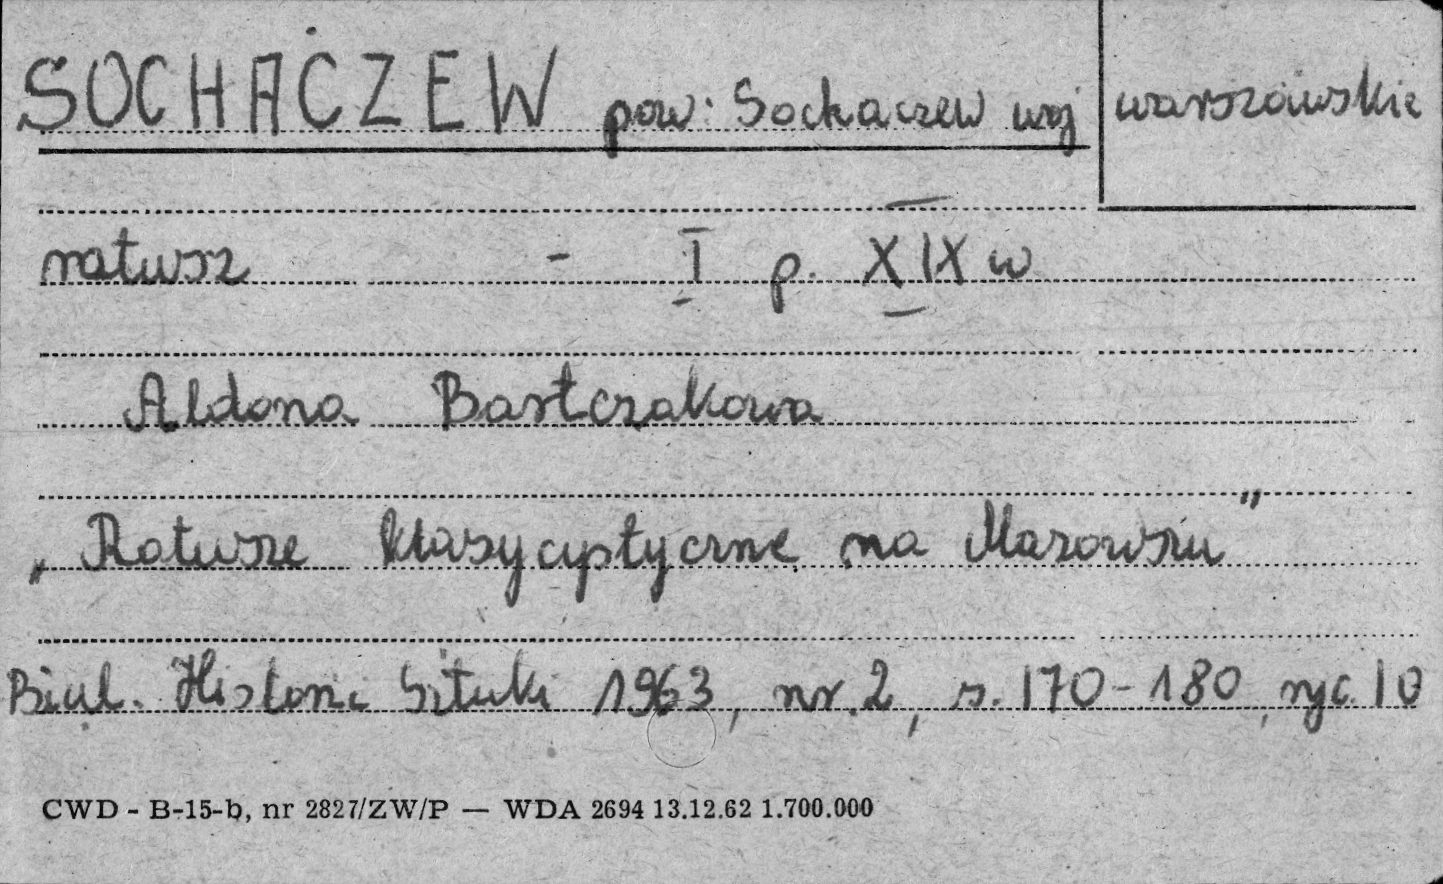 SOCHACZEW pow. Sochaczew woj warszawskie
ratusz - I p. XIX w
Aldona Bartczakowa
„Ratusze klasycystyczne na Mazowszu"
Biul. Historii Sztuki 1963, nr. 2, s. 170-180, ryc. 10
CWD - B-15-b, nr 2827/ZW/P — WDA 2694 13.12.62 1.700.000